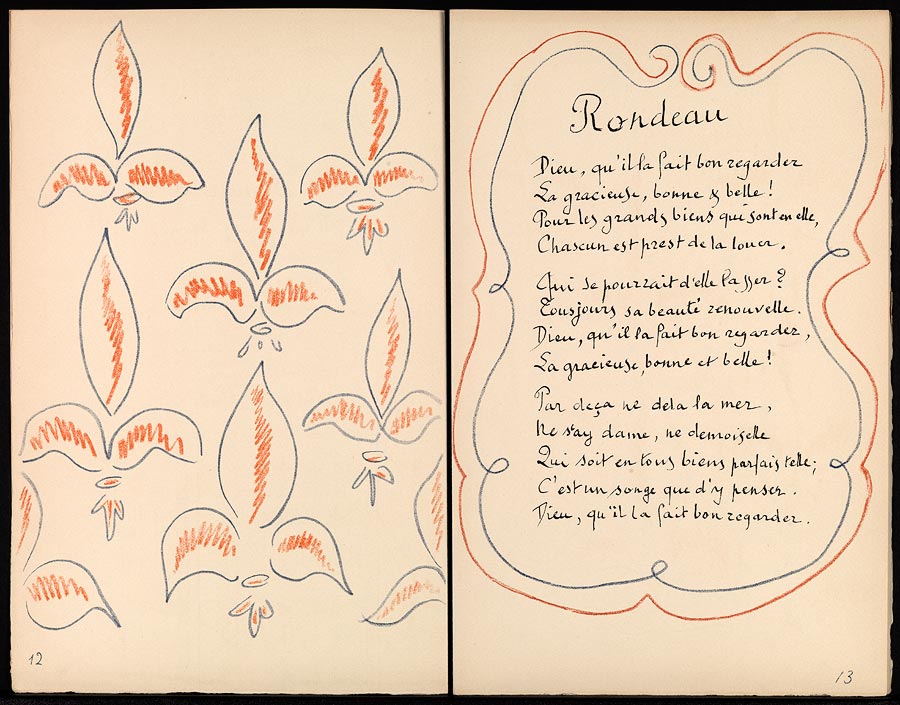 Rondeau
Dieu, qu'il la fait bon regarder
La gracieuse, bonne & belle !
Pour les grands biens qui sont en elle,
Chascun est prest de la louer.
Qui se pourrait d'elle lasser ?
Tousjours sa beauté renouvelle.
Dieu, qu'il la fait bon regarder,
La gracieuse, bonne et belle !
Par deça ne dela la mer,
Ne say dame, ne demoiselle
Qui soit en tous biens parfais telle ;
C'est un songe que d'y penser.
Dieu, qu'il la fait bon regarder.
12
13